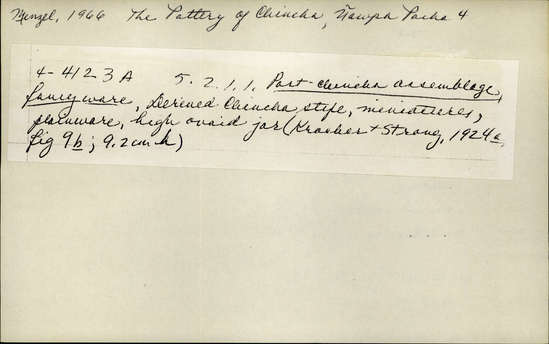 Menzel, 1966 The Pottery of Chincha, Ñawpa Pacha 4
4-4123A 5.2.1.1. Post-chincha assemblage,
fancyware, Derived Chincha style, miniatures,
plainware, high ovoid jar (Kroeber + Strong, 1924a,
fig 9b; 9.2 cm h)